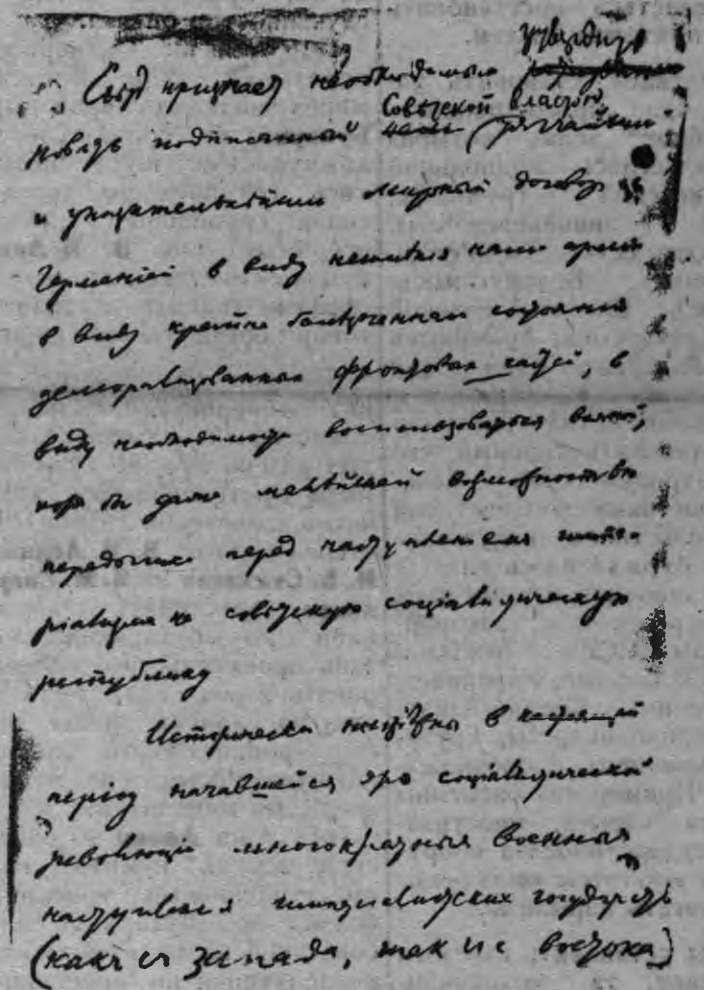 утвердить
Съезд признает необходимым
Советской властью
подписанный тягчайший
и унизительнейший мирный договор с
Германией в виду неимения нами армии
в виду крайне болезненнаго состояния
деморализованных фронтовых частей, в
виду необходимости воспользоваться всякой,
хотя бы даже малейшей возможностью
передышки перед наступлением импе-
риализма на советскую социалистическую
республику
Исторически неизбежны в настоящий
период начавшейся эры социалистической
революции многократныя военныя
наступления империалистских государств
(как и с запада, так и с востока)